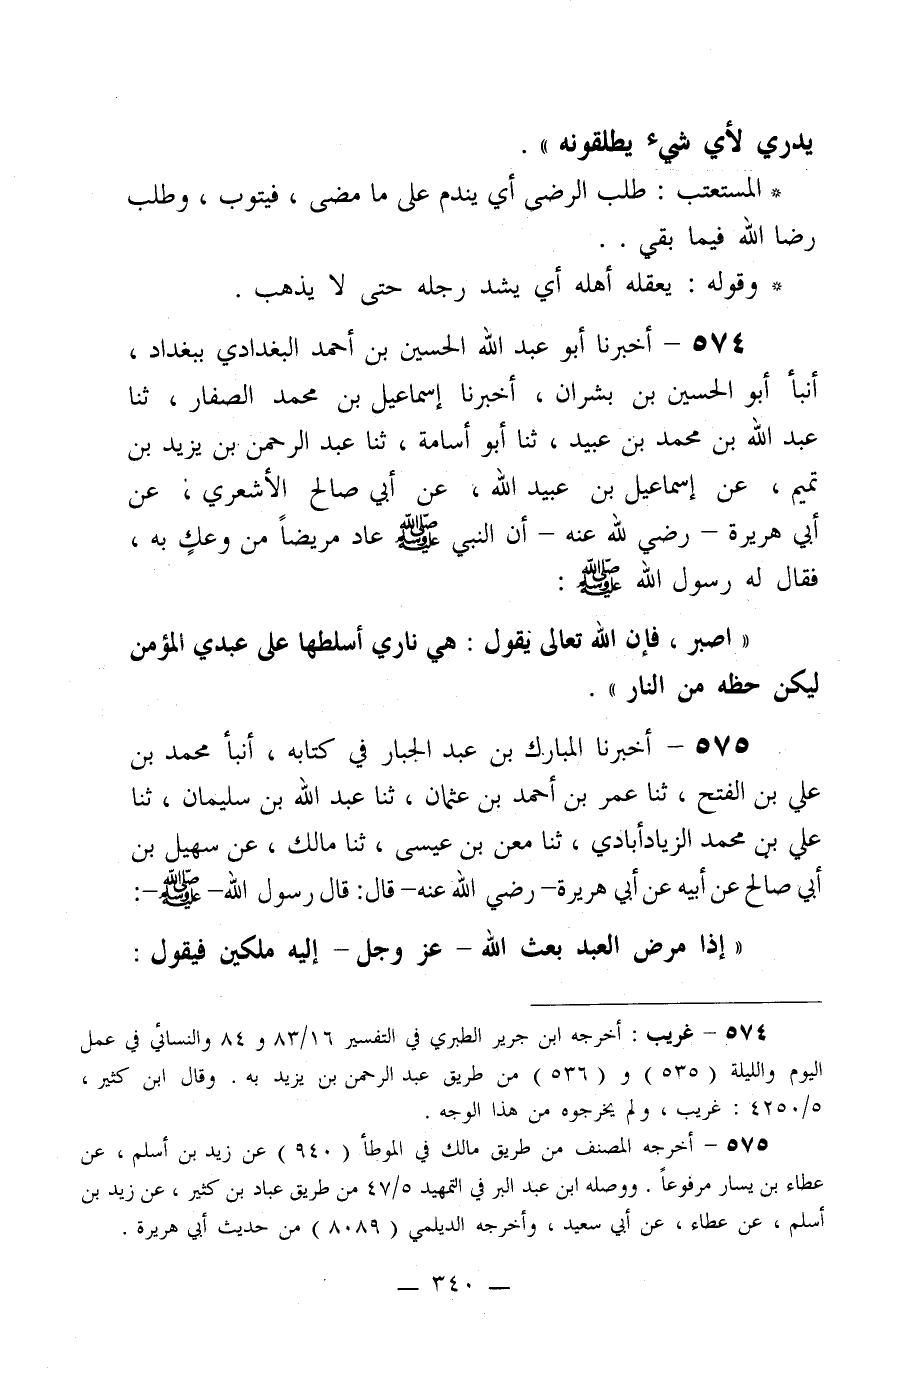 يدري لأي شيء يطلقونه » .
* المستعتب : طلب الرضى أي يندم على ما مضى ، فيتوب ، وطلب
رضا الله فيما بقي . .
* وقوله : يعقله أهله أي يشد رجله حتى لا يذهب .
٥٧٤ – أخبرنا أبو عبد الله الحسين بن أحمد البغدادي ببغداد ،
أنبأ أبو الحسين بن بشران ، أخبرنا إسماعيل بن محمد الصفار ، ثنا
عبد الله بن محمد بن عبيد ، ثنا أبو أسامة ، ثنا عبد الرحمن بن يزيد بن
تميم ، عن إسماعيل بن عبيد الله ، عن أبي صالح الأشعري ، عن
أبي هريرة – رضي لله عنه – أن النبي ﷺ عاد مريضاً من وعكٍ به ،
فقال له رسول الله ﷺ :
« اصبر ، فإن الله تعالى يقول : هي ناري أسلطها على عبدي المؤمن
ليكن حظه من النار » .
٥٧٥ – أخبرنا المبارك بن عبد الجبار في كتابه ، أنبأ محمد بن
علي بن الفتح ، ثنا عمر بن أحمد بن عثمان ، ثنا عبد الله بن سليمان ، ثنا
علي بن محمد الزيادأبادي ، ثنا معن بن عيسى ، ثنا مالك ، عن سهيل بن
أبي صالح عن أبيه عن أبي هريرة– رضي الله عنه– قال: قال رسول الله– ﷺ–:
« إذا مرض العبد بعث الله – عز وجل – إليه ملكين فيقول :
٥٧٤ – غريب : أخرجه ابن جرير الطبري في التفسير ٨٣/١٦ و ٨٤ والنسائي في عمل
اليوم والليلة ( ٥٣٥ ) و ( ٥٣٦ ) من طريق عبد الرحمن بن يزيد به . وقال ابن كثير ،
٤٢٥٠/٥ : غريب ، ولم يخرجوه من هذا الوجه .
٥٧٥ – أخرجه المصنف من طريق مالك في الموطأ ( ٩٤٠ ) عن زيد بن أسلم ، عن
عطاء بن يسار مرفوعاً . ووصله ابن عبد البر في التمهيد ٤٧/٥ من طريق عباد بن كثير ، عن زيد بن
أسلم ، عن عطاء ، عن أبي سعيد ، وأخرجه الديلمي ( ٨٠٨٩ ) من حديث أبي هريرة .
— ٣٤٠ —